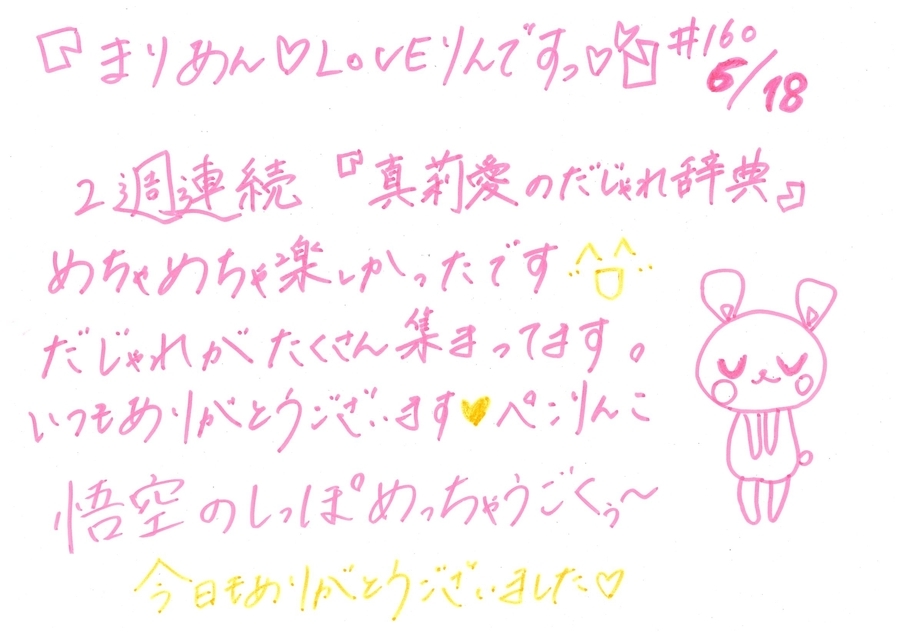 『まりめん♡LOVEりんですっ♡♡』#160
6/18
2週連続『真莉愛のだじゃれ辞典』
めちゃめちゃ楽しかったです
だじゃれがたくさん集まってます。
いつもありがとうございます♥ぺこりんこ
悟空のしっぽめっちゃうごくぅ〜
今日もありがとうございました♡